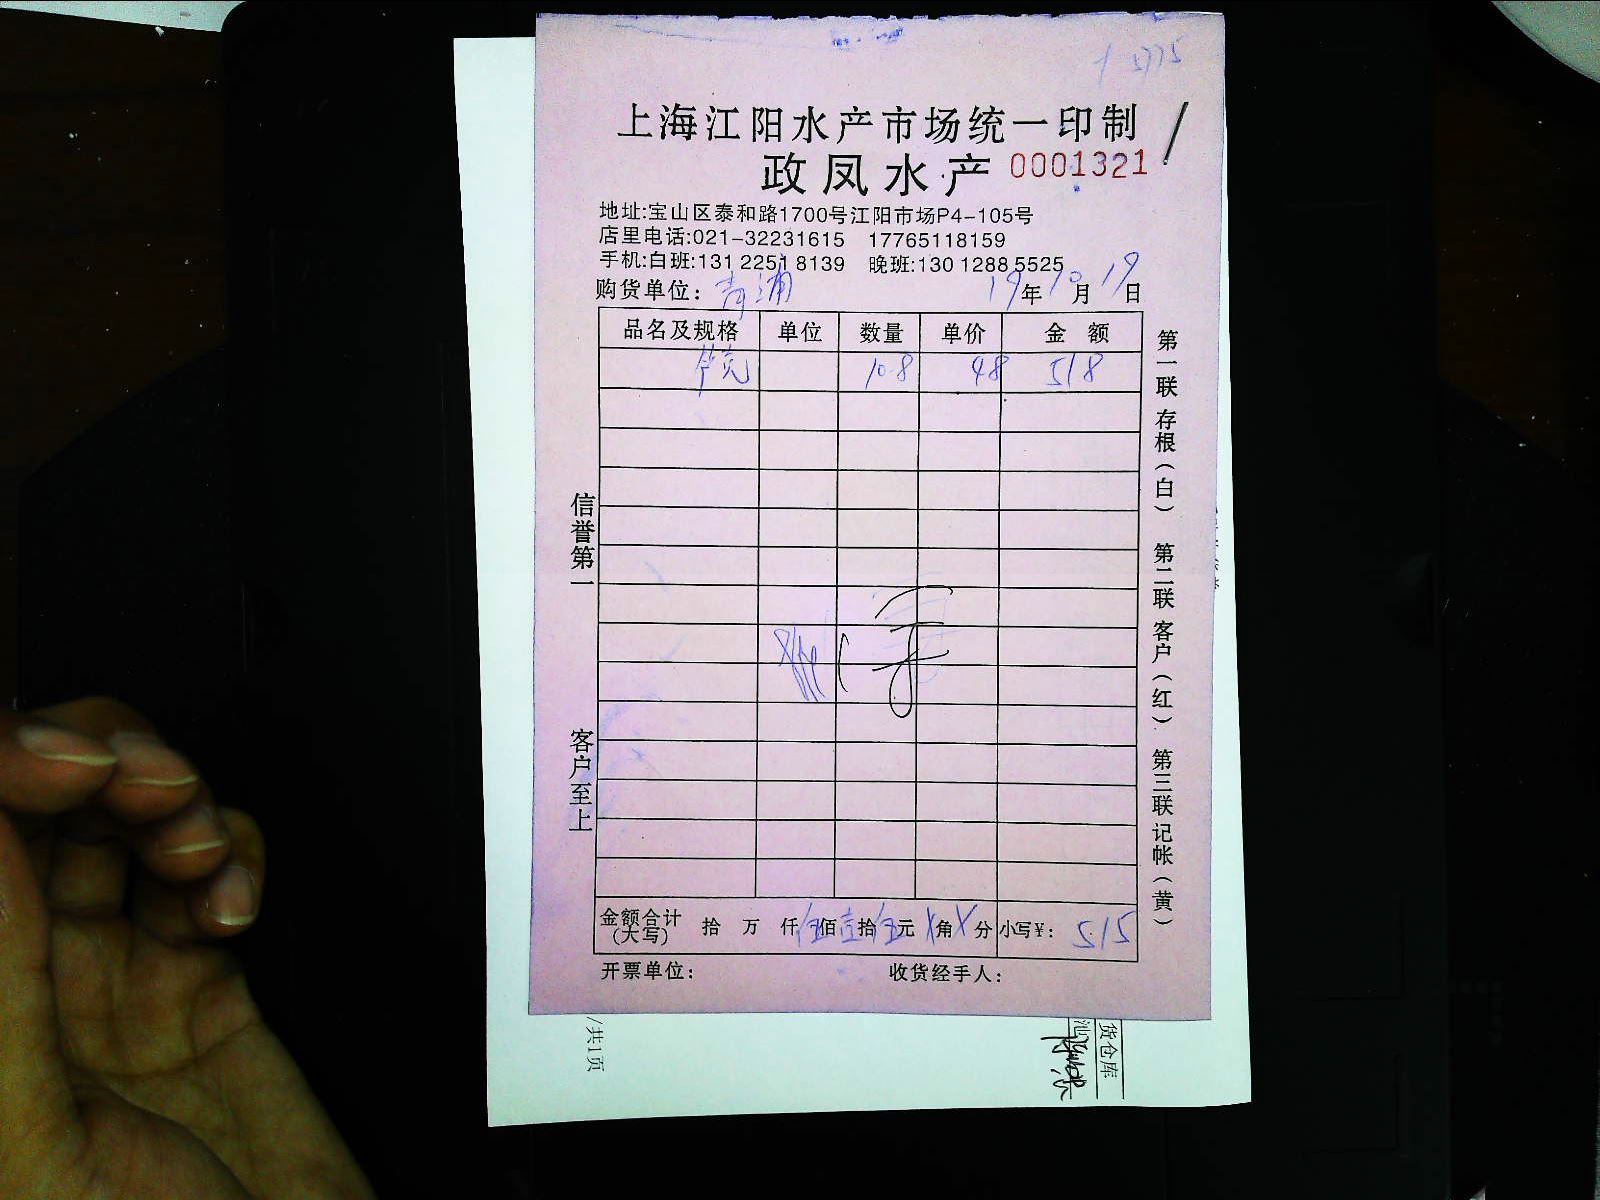 上海江阳水产市场统一印制
政凤水产 0001321
地址:宝山区泰和路1700号江阳市场P4-105号
店里电话:021-32231615 17765118159
手机:白班:131 2251 8139 晚班:130 1288 5525
购货单位: 青浦 19年10月19日
品名及规格 单位 数量 单价 金额
10.8 48 518
金额合计(大写) 拾 万 仟伍佰壹拾伍元X角X分 小写¥: 515
开票单位: 收货经手人:
信誉第一
客户至上
第一联 存根(白) 第二联 客户(红) 第三联 记帐(黄)
/共1页
货仓库